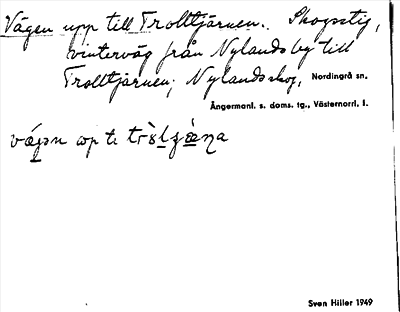 Vägen upp till Trolltjärnen. Skogsstig,
vinterväg från Nylands by till
Trolltjärnen; Nylands skog, Nordingrå sn.
Ångermanl. s. doms. tg., Västernorrl. l.
Sven Hiller 1949